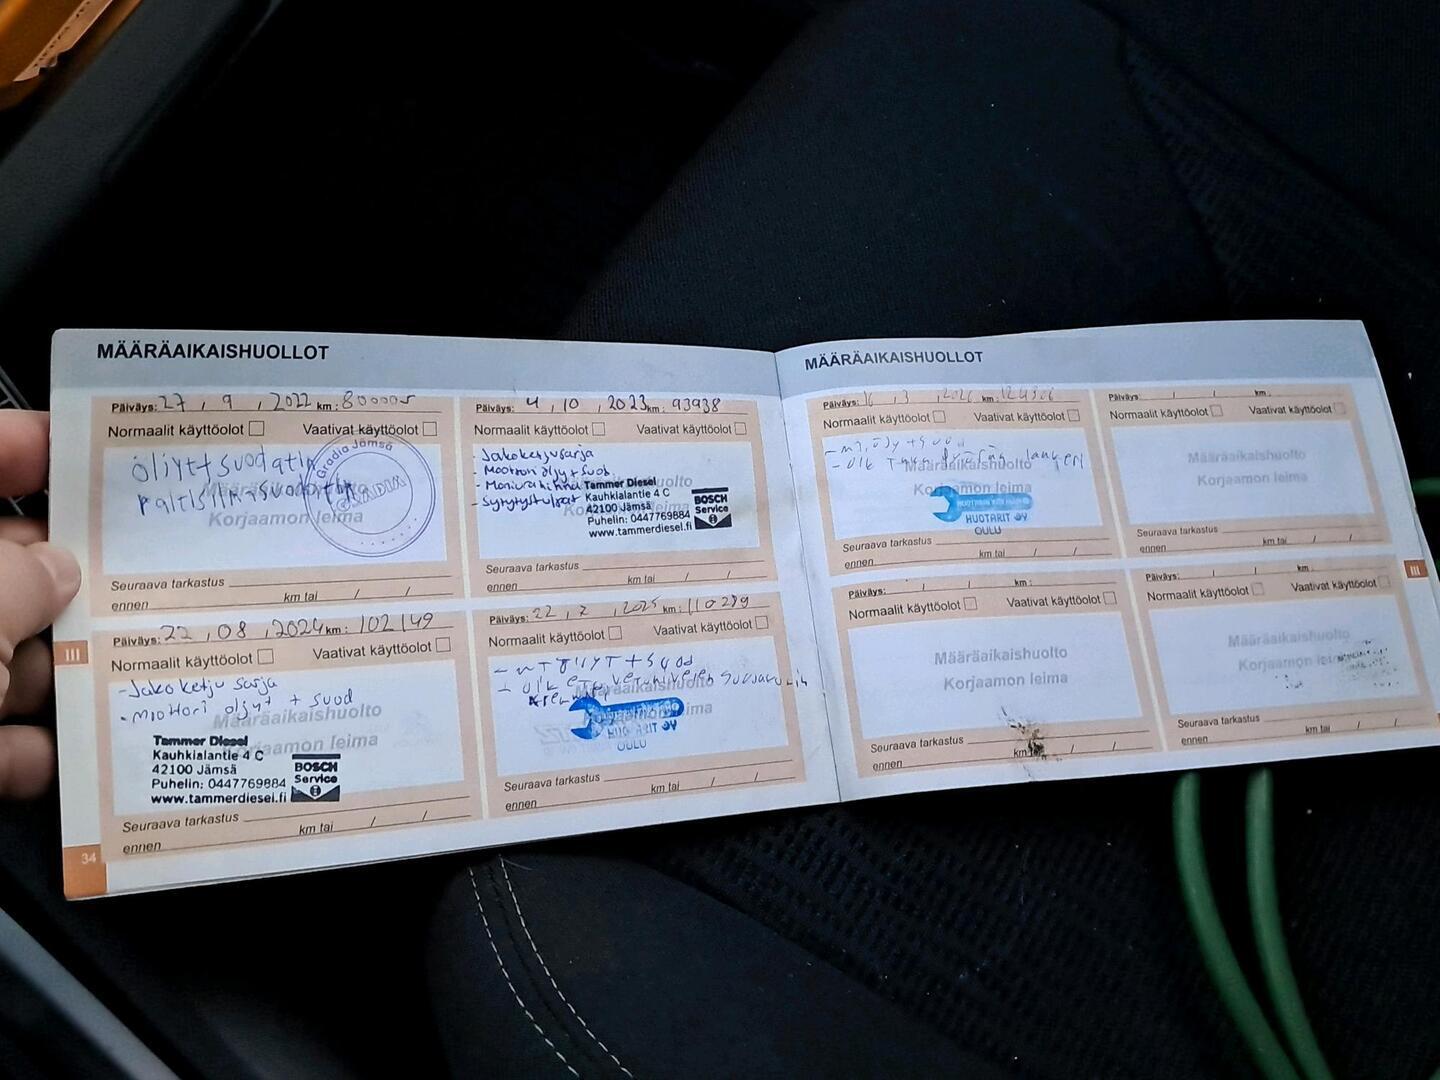 MÄÄRÄAIKAISHUOLLOT
Päiväys: 27 , 9 , 2022 km: 80000
Normaalit käyttöolot Vaativat käyttöolot
öljyt+suodatin
raitisilmasuodatin
Gradia Jämsä
GRADIA
Korjaamon leima
Seuraava tarkastus
ennen km tai / /
Päiväys: 4 , 10 , 2023 km: 93938
Normaalit käyttöolot Vaativat käyttöolot
- Jakoketjusarja
- Moottori öljy + suod.
- Moniurahihna
- Sytytystulpat
Tammer Diesel
Kauhkialantie 4 C
42100 Jämsä
Puhelin: 0447769884
www.tammerdiesel.fi
BOSCH
Service
Seuraava tarkastus
ennen km tai / /
Päiväys: 22 , 08 , 2024 km: 102149
Normaalit käyttöolot Vaativat käyttöolot
- Jakoketju sarja
- Moottori öljyt + suod
Määräaikaishuolto
Korjaamon leima
Tammer Diesel
Kauhkialantie 4 C
42100 Jämsä
Puhelin: 0447769884
www.tammerdiesel.fi
BOSCH
Service
Seuraava tarkastus
ennen km tai / /
34
III
Päiväys: 22 , 2025 km: 110289
Normaalit käyttöolot Vaativat käyttöolot
+ suod
Määräaikaishuolto
HUOTARIT OY
OULU
Seuraava tarkastus
ennen km tai / /
MÄÄRÄAIKAISHUOLLOT
Päiväys: 16 , 3 , 2026 km: 124306
Normaalit käyttöolot Vaativat käyttöolot
Määräaikaishuolto
Korjaamon leima
HUOTARIT OY
OULU
Seuraava tarkastus
ennen km tai / /
Päiväys: / / km:
Normaalit käyttöolot Vaativat käyttöolot
Määräaikaishuolto
Korjaamon leima
Seuraava tarkastus
ennen km tai / /
III
Päiväys: / / km:
Normaalit käyttöolot Vaativat käyttöolot
Määräaikaishuolto
Korjaamon leima
Seuraava tarkastus
ennen km tai / /
Päiväys: / / km:
Normaalit käyttöolot Vaativat käyttöolot
Määräaikaishuolto
Korjaamon leima
Seuraava tarkastus
ennen km tai / /